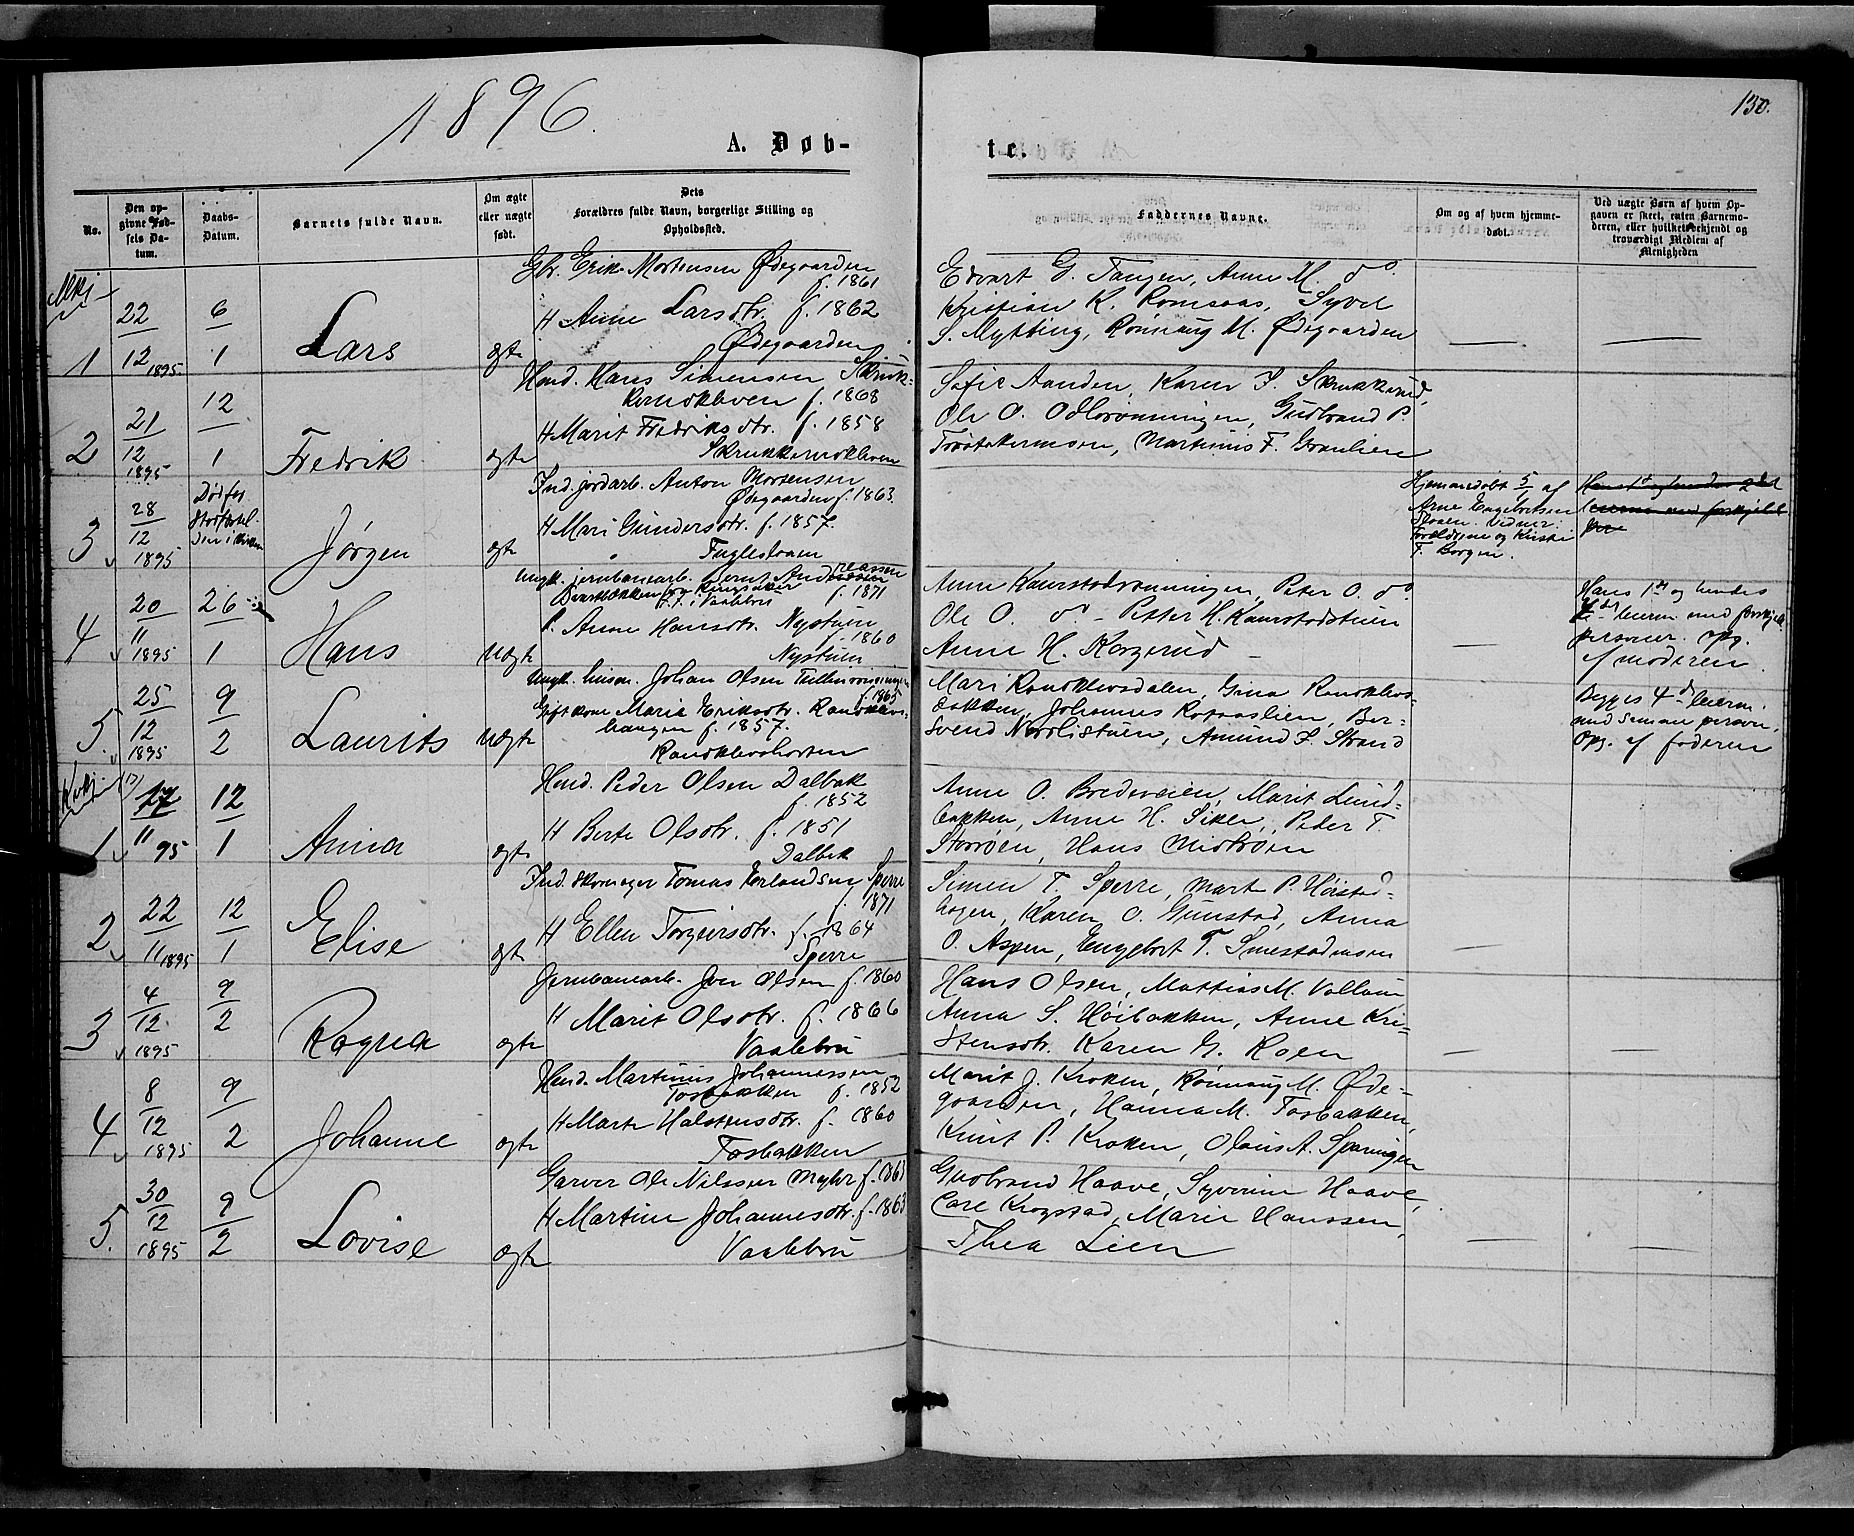 1896.
130.
A. Døb-
te.
No.
Den op-
givne Fød-
sels Da-
tum.
Daabs-
Datum.
Barnets fulde Navn.
Om ægte
eller uægte
født.
Dets
Forældres fulde Navn, borgerlige Stilling og
Opholdssted.
Faddernes Navne.
Om og af hvem hjemme-
døbt.
Ved uægte Børn af hvem Op-
gaven er skeet, enten Barnemo-
deren, eller hvilket bekjendt og
troværdigt Medlem af
Menigheden
1
22
12 1895
6
1
Lars
ægte
Gbr. Erik Mortensen Ødegaarden
f. 1861
H Anne Larsdtr. f. 1862
Ødegaarden
Edvart G. Tangen, Anne M. do.
Kristian K. Romsaas, Syver
S. Mytting, Rønnaug M. Ødegaarden
2
21
12
1895
12
1
Fredrik
ægte
Hans Simensen Skruk-
f. 1868
H Marit Fredriksdtr. f. 1858
Sofie Aanden, Karen S. Skrukkerud,
Ole O. Odlorønningen, Gudbrand P.
Martinus F. Granlien
3
28
12
1895
Jørgen
ægte
Ind. jordarb. Anton Mortensen
Ødegaarden f. 1863
H Mari Gundersdtr. f. 1857.
Fuglestuen
Hjemmedøbt 5/1 af
Arne Engebretsen
Forældrene og Kristi
T. Borgen.
4
20
11
1895
26
1
Hans
uægte
Ungk. jernbanearb. Bernt Andreassen
f. 1871
P. Anne Hansdtr. Nystuen
f. 1860
Nystuen
Anne Kaurstadrønningen, Peter O. do
Ole O. do - Petter H. Kaurstadstuen
Anne H. Korgerud
Hans 1ste og hendes
leierm. med forskjell.
personer. opg.
af moderen.
5.
25
12
1895
9
2
Laurits
uægte
Johan Olsen
f. 1865
Gift kone Maria Eriksdtr.
haugen f. 1857.
Mari Randklevsdalen, Gina Randklevs-
bakken, Johannes Rofaaslien, Ber-
svend Nordlistuen, Amund S. Strand
Begges 4de leierm.
med samme person.
Opg. af faderen
1
17
11 95
12
1
Anna
ægte
Peder Olsen Dalbak
f. 1852
H Berte Olsdtr. f. 1851
Dalbak
Anne O. Bredeveien, Marit Lund-
bakken, Anne H. Peder T.
Storrøen, Hans Midtrøen
2
22
11 1895
12
1
Elise
ægte
Ind. skomager Tomas Erlandsen Sperre
f. 1871
H Ellen Torgeirsdtr. f. 1864
Sperre
Simen T. Sperre, Marit P. Høistad-
hagen, Karen O. Gunstad, Anna
O. Aspen, Engebret T. Smestadmoen
3
4
12
1895
9
2
Ragna
ægte
Jernbanearb. Iver Olsen f. 1860
H Marit Olsdtr. f. 1866
Vaalebru
Hans Olsen, Mattias M. Vollum
Anna S. Høibakken, Anne Kri-
stensdtr. Karen G. Roen
4
8
12
1895
9
2
Johanne
ægte
Martinus Johannessen
Tosbakken f. 1852
H Marte Halstensdtr. f. 1860
Tosbakken
Marit J. Kroken, Rønnaug M. Øde-
gaarden, Hanna M. Tosbakken,
Knut P. Kroken, Olaus A. Sparingen
5.
30
12
1895
9
2
Lovise
ægte
Garver Ole Nilssen Myhr f. 1861
H Martine Johannesdtr. f. 1863
Vaalebru
Gudbrand Haave, Syverine Haave,
Carl Krogstad, Marie Hanssen,
Thea Lien